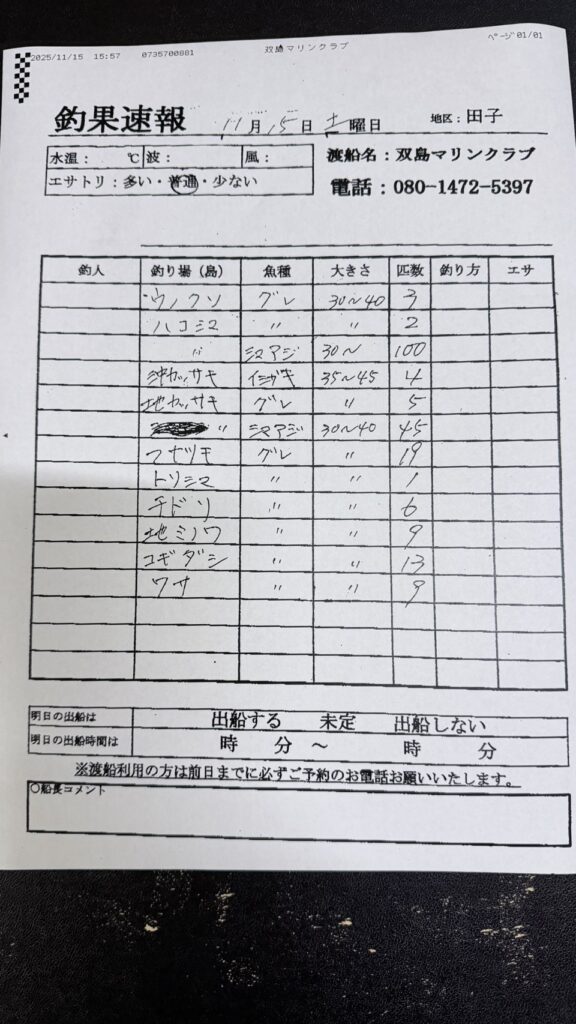 2025/11/15 15:57 0735700881 双島マリンクラブ ページ 01/01
釣果速報 11月15日土曜日 地区：田子
水温： ℃ 波： 風： 渡船名：双島マリンクラブ
エサトリ：多い・普通・少ない 電話：080-1472-5397
釣人 釣り場（島） 魚種 大きさ 匹数 釣り方 エサ
ウノクソ グレ 30〜40 3
ハコシマ 〃 〃 2
〃 シマアジ 30〜 100
沖カッサキ イシガキ 35〜45 4
地カッサキ グレ 〃 5
〃 シマアジ 30〜40 45
グレ 〃 19
トリシマ 〃 〃 1
チドリ 〃 〃 6
地ミノワ 〃 〃 9
コギダシ 〃 〃 13
ワサ 〃 〃 9
明日の出船は 出船する 未定 出船しない
明日の出船時間は 時 分 〜 時 分
※渡船利用の方は前日までに必ずご予約のお電話お願いいたします。
○船長コメント